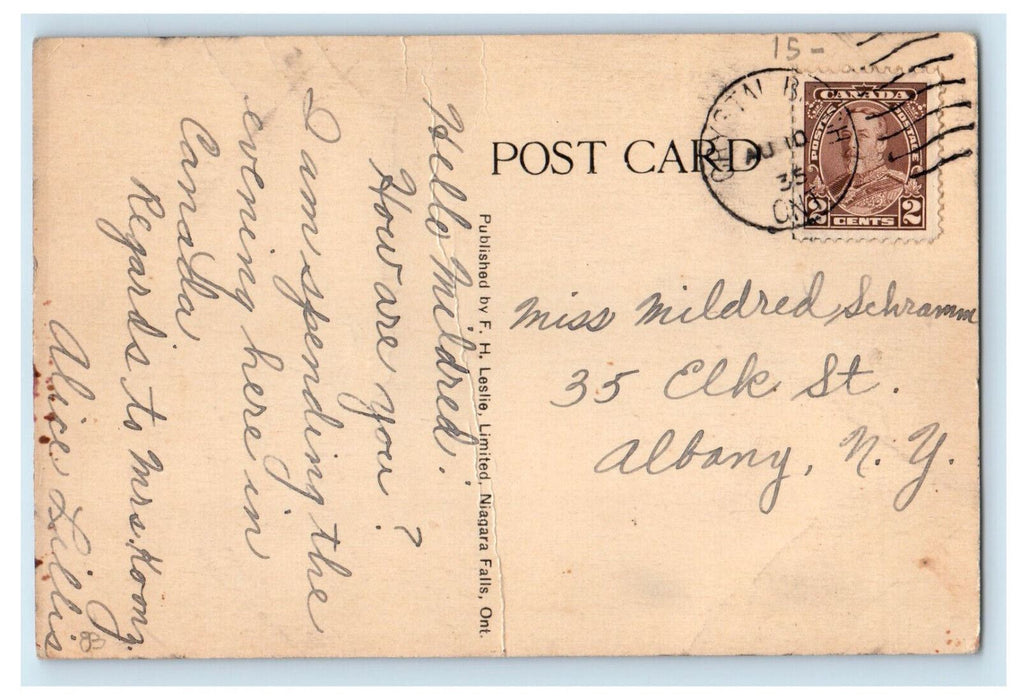 15-
POST CARD
CRYSTAL B
H
AU 10
35
ONT
CANADA
POSTES POSTAGE
2 CENTS 2
Miss Mildred Schramm
35 Elk St.
Albany, N. Y.
Published by F. H. Leslie, Limited, Niagara Falls, Ont.
Hello Mildred.
How are you?
I am spending the
evening here in
Canada
Regards to Mrs. Koonz.
Alice Lillis